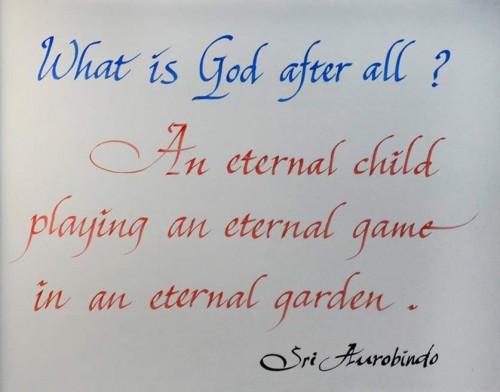 What is God after all ?
An eternal child
playing an eternal game
in an eternal garden .
Sri Aurobindo